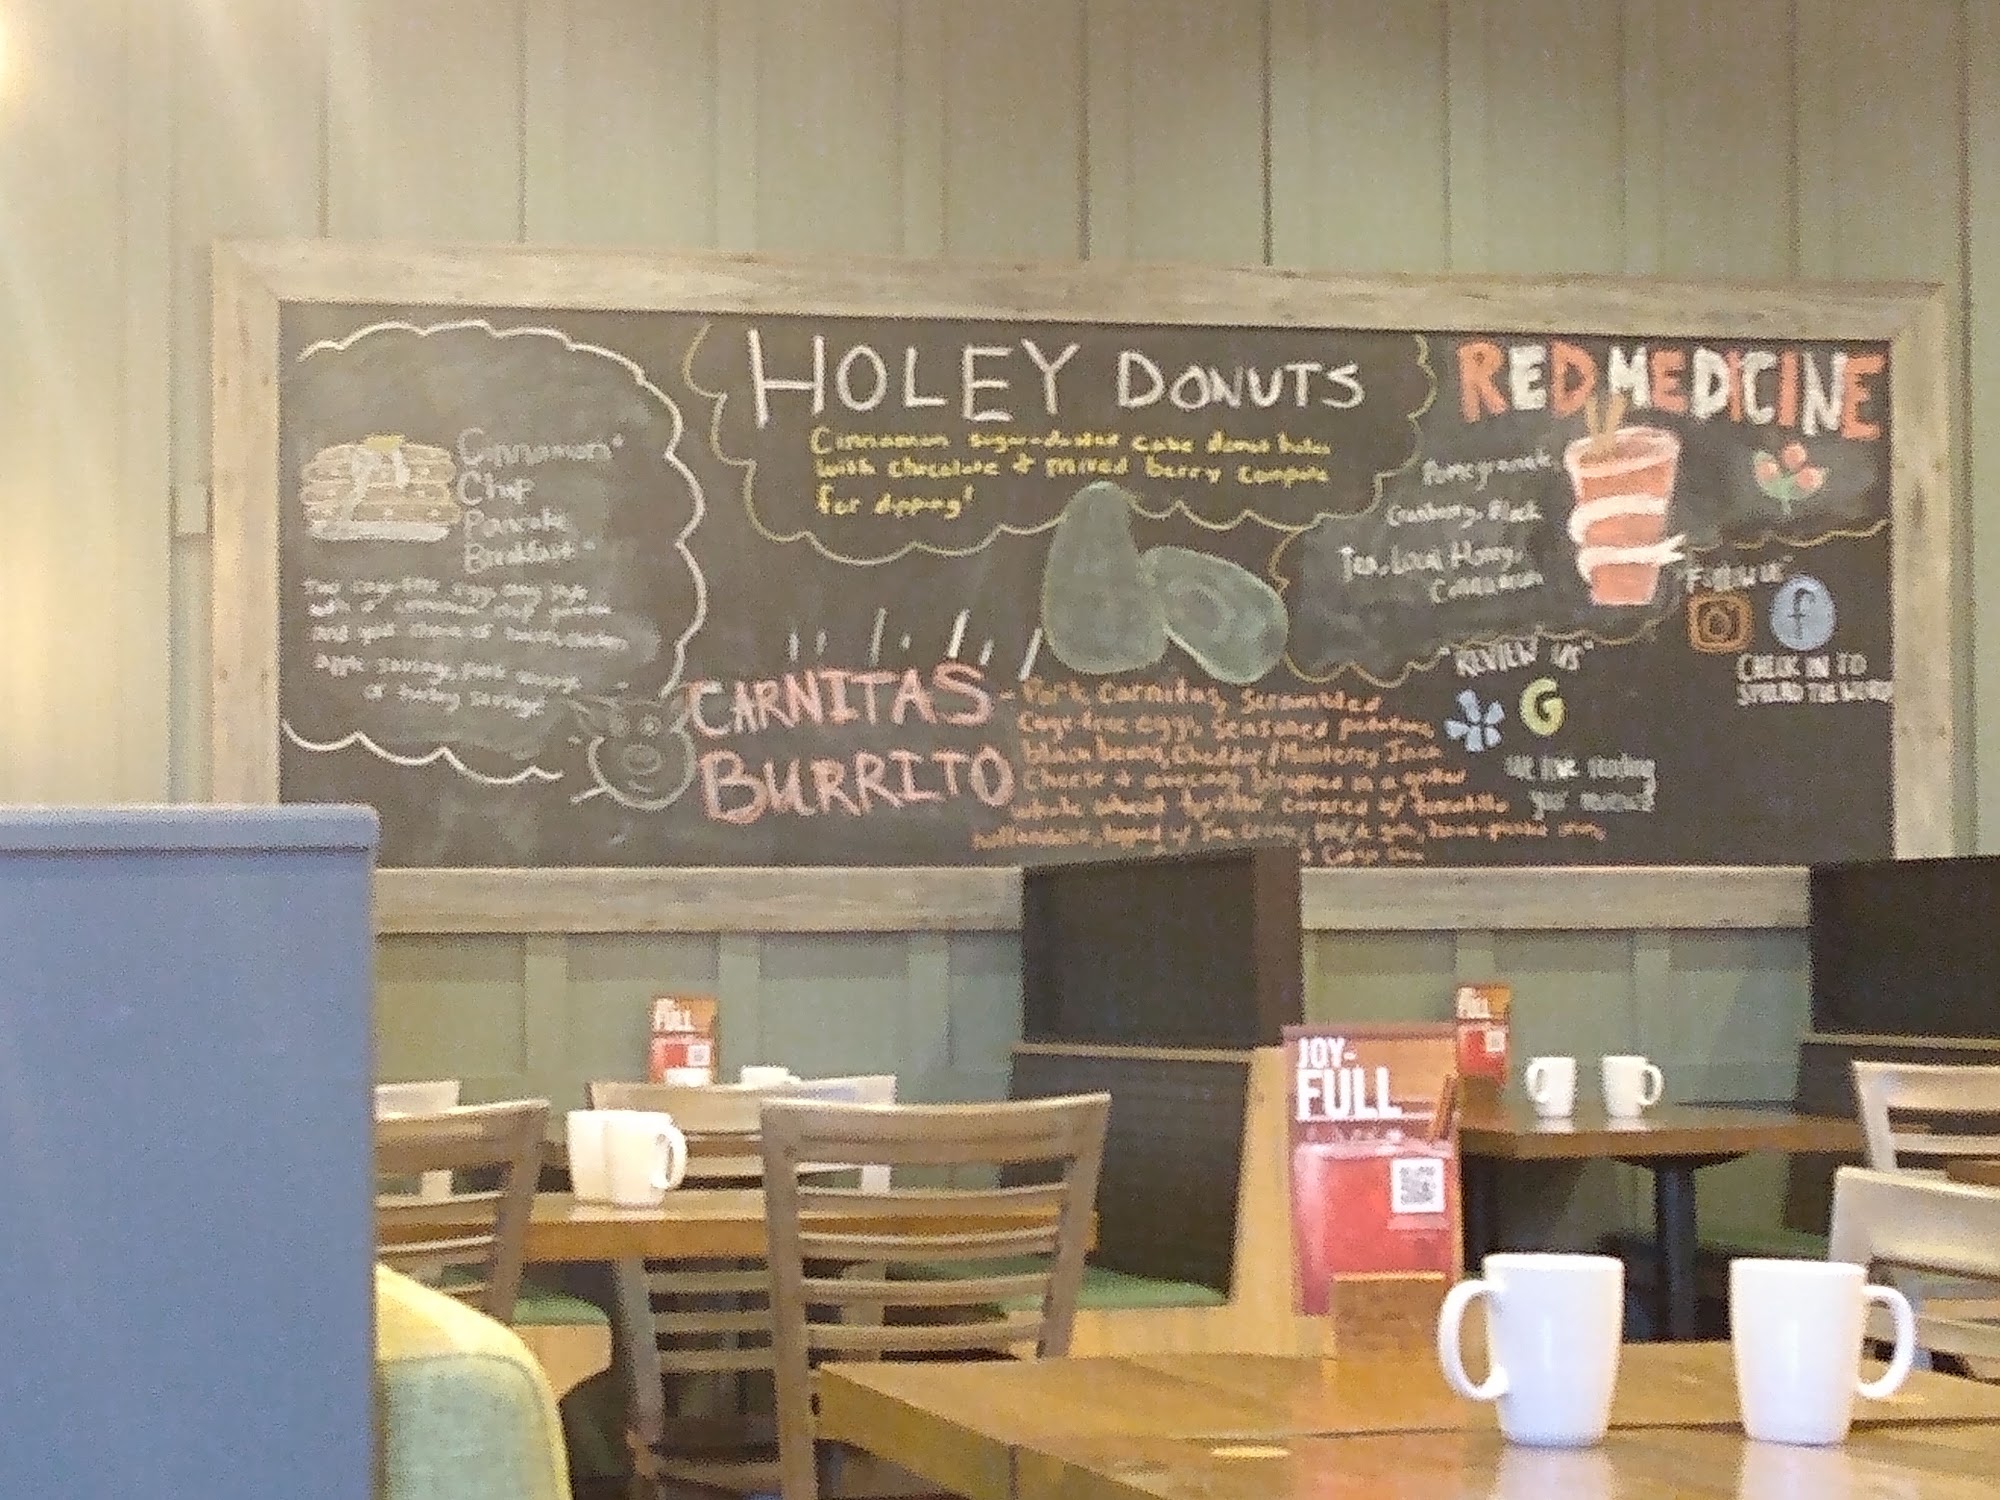 Cinnamon
Chip
Pancake
Breakfast"
Two cage-free eggs any style
with a cinnamon chip pancake
and your choice of bacon, chicken
apple sausage, pork sausage
or turkey sausage
HOLEY DONUTS
Cinnamon sugar-dusted cake donut holes
with chocolate + mixed berry compote
for dipping!
CARNITAS
BURRITO
- Pork Carnitas, Scrambled
Cage-free eggs, Seasoned potatoes,
black beans, Cheddar/Monterey Jack
Cheese + avocado, wrapped in a
whole wheat tortilla covered
RED MEDICINE
Pomegranate
Cranberry, Black
Tea, Local Honey,
Cinnamon
"FOLLOW US"
f
CHECK IN TO
SPREAD THE WORD
"REVIEW US"
G
We love reading
your
JOY-
FULL
FULL
FULL